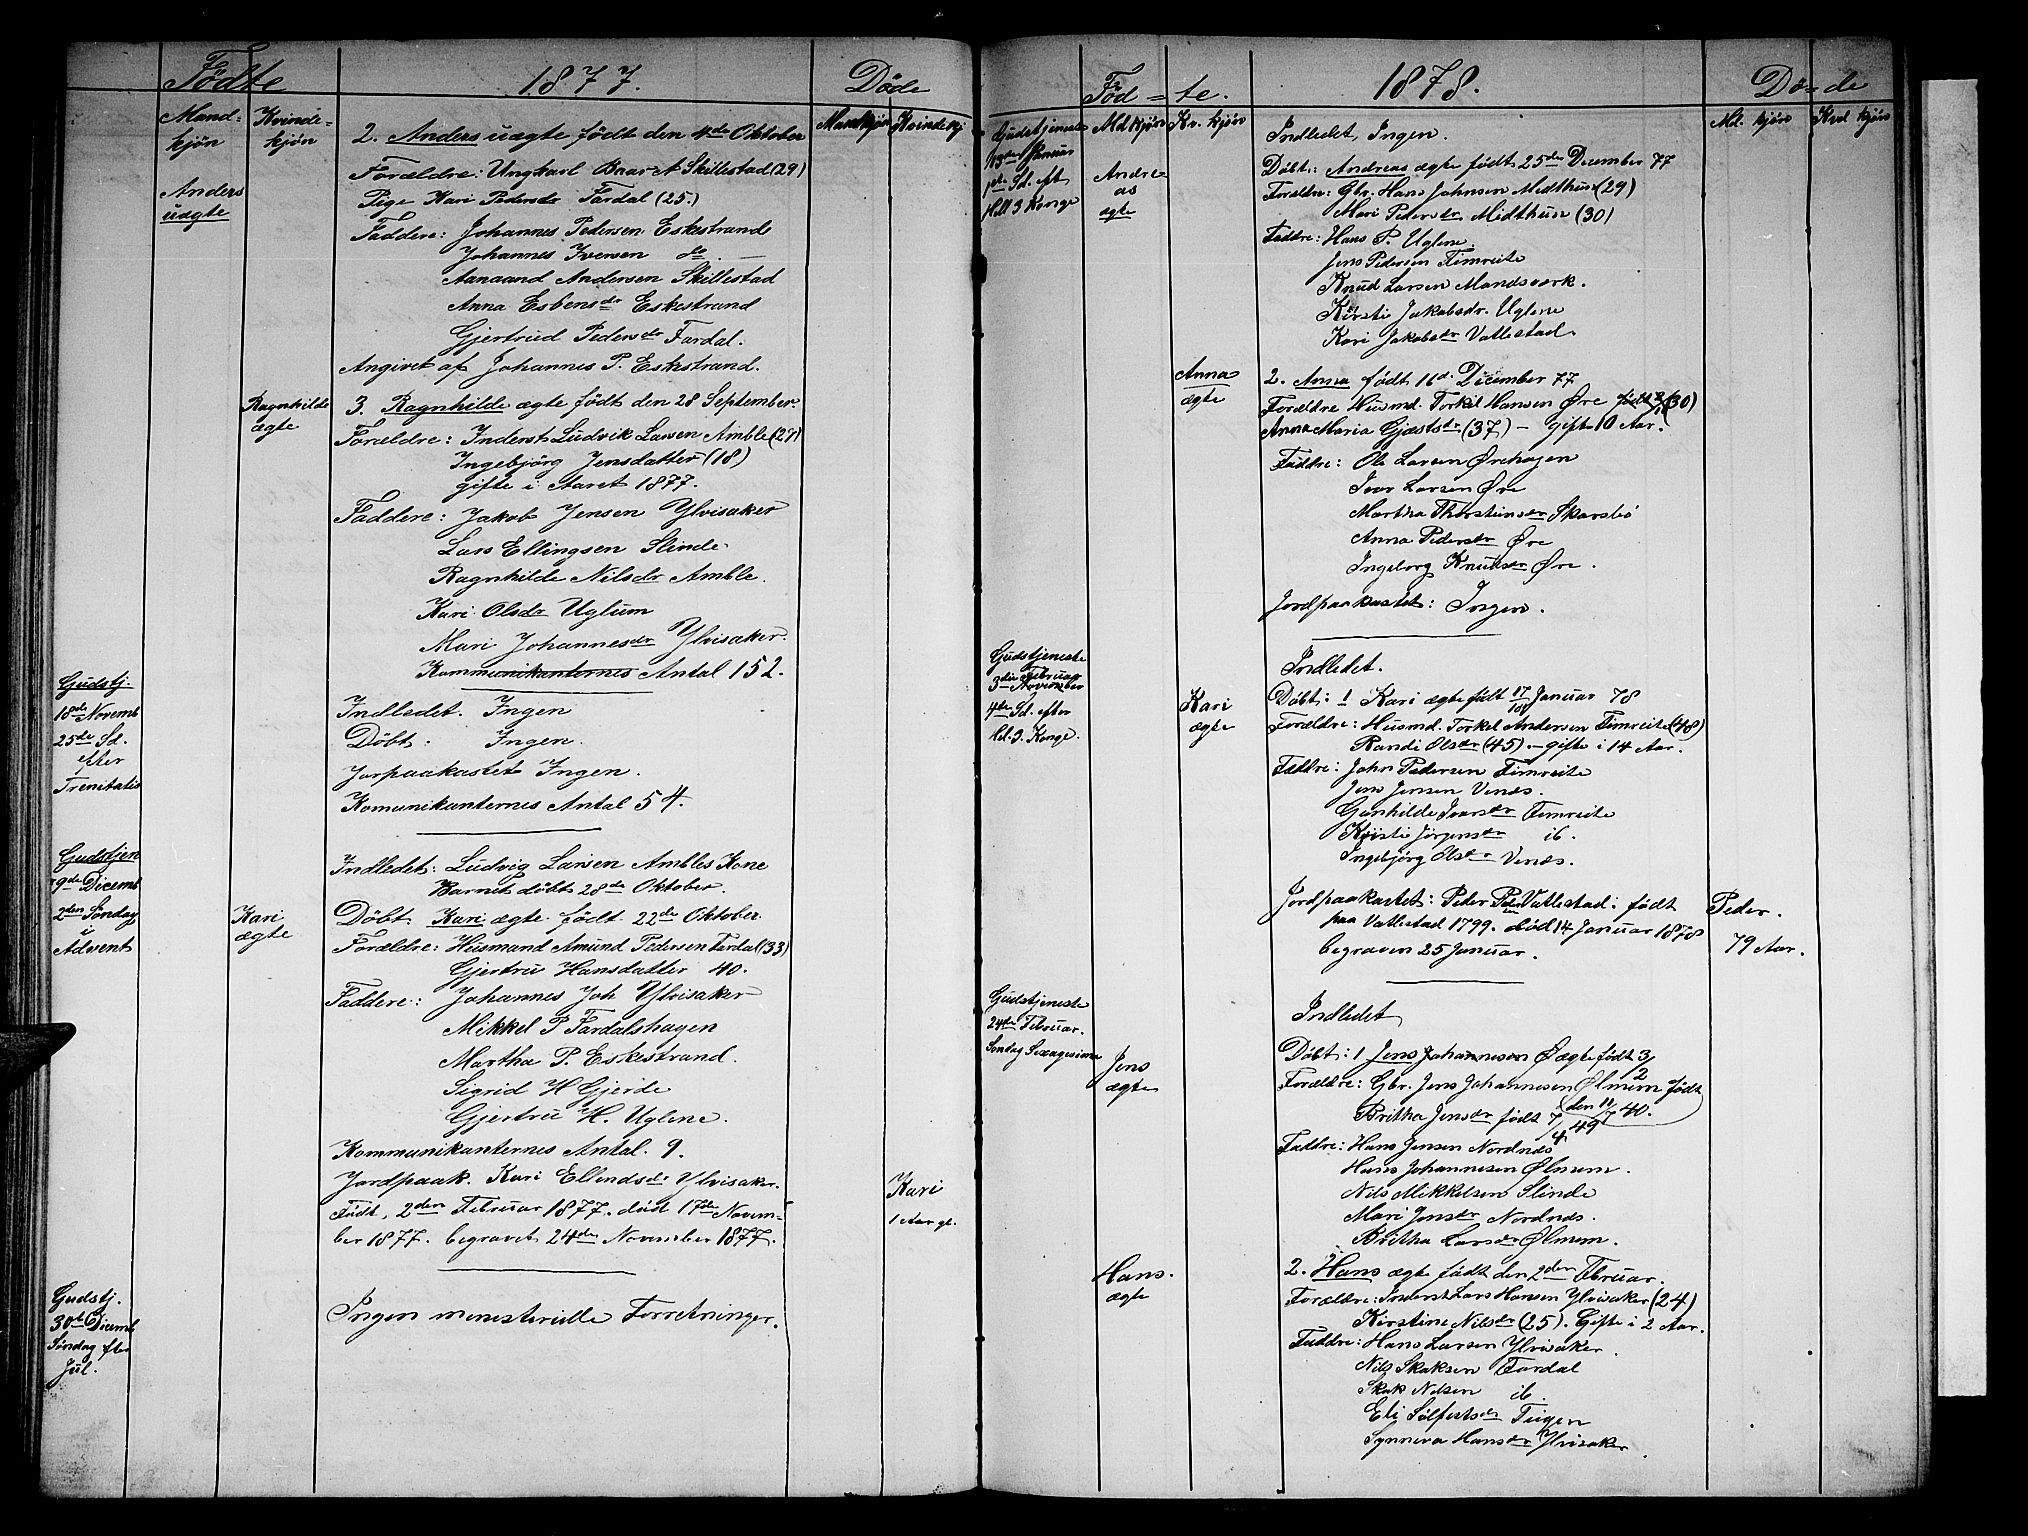 Födte
1877.
Döde
Mand-
kjön
Kvinde-
kjön
Mandkjön
Kvindekj
Anders
uægte
2. Anders uægte födt den 4de Oktober
Forældre: Ungkarl Baar A Skillestad (29)
Pige Kari Pedersdr Fardal (25.)
Faddere: Johannes Pedersen Eskestrand
Johannes Iversen do. —
Aanaand Andersen Skillestad
Anna Esbensdr Eskestrand
Gjertrud Pedersdr Fardal.
Angivet af Johannes P. Eskestrand.
Ragnhilde
ægte
3. Ragnhilde ægte födt den 28 September.
Forældre: Inderst Ludvik Larsen Amble (29)
Ingebjörg Jensdatter (18)
gifte i Aaret 1877.
Faddere: Jakob Jensen Ylvisaker
Lars Ellingsen Slinde
Ragnhilde Nilsdr Amble.
Kari Olsdr Uglum
Mari Johannesdr Ylvisaker.
Kommunikanternes Antal 152.
Gudstj.
18de Novemb
25de Sd.
efter
Trenitatis
Indledet. Ingen
Döbt: Ingen.
Jorpaakastet Ingen.
Komunikanternes Antal 54.
Gudstjen
9de Dicemb
2den Söndag
i
Advent
Indledet: Ludvig Larsen Ambles Kone
Barnet döbt 28de Oktober.
Kari
ægte
Döbt Kari ægte födt 22de Oktober
Forældre: Husmand Amund Pedersen Fardal (33)
Gjertru Hansdatter 40.
Faddere: Johannes Joh Ylvisaker
Mikkel P Fardalshagen
Martha P. Eskestrand.
Sigrid H Gjerde
Gjertru H. Uglene.
Kommunikanternes Antal. 9.
Jordpaak. Kari Ellendsdr Ylvisaker.
Födt, 2den Februar 1877. död 17de Novem-
ber 1877. begravet 24den November 1877.
Kari
1 Aar gl.
Gudstj.
30te Dicemb
Söndag efter
Jul.
Ingen menesterielle Forretninger.
Föd-te.
1878.
Dö-de
Gudstjeneste
Md kjön
Kv. kjön
Md. kjön
Kvd kjön
13de Januar
1ste Sd. eft
Hell 3 Konge
Andre-
as
ægte
Indledet, Ingen.
Döbt: Andreas ægte födt 25de December 77
Forældre: Gbr. Hans Johnsen Midthun (29)
Mari Pedersdr Midthun (30)
Faddre: Hans P. Uglene
Jens Pedersen Timreite
Knud Larsen Mandsværk.
Kirsti Jakobsdr. Uglene
Kari Jakobsdr Vallestad.
Anna
ægte
2. Anna födt 16d. Dicember 77
Forældre Husmd. Torkil Hansen Øre (30)
Anna Maria Gjæstsdr (37) - gifte 10 Aar.
Faddre: Ole Larsen Ørehagen
Ivar Larsen Øre
Martha Thorsteinsdr Skarsbö
Anna Pedersdr Øre
Ingeborg Knutsdr Øre.
Jordpaakastet: Ingen.
Gudstjeneste
3die Februar
November
4de Sd. efter
hl. 3. Konge.
Indledet.
Kari
ægte
Döbt: 1 Kari ægte födt 17 Januar 78
Forældre: Husmd. Torkel Andersen Timreite (48)
Randi Olsdr (45). - gifte i 14 Aar.
Faddre: John Pedersen Timreite
Jens Jensen Venæs.
Gunhilde Ivarsdr Timreite
Kristie Jörgensdr ib.
Ingebjörg Olsdr Venæs.
Jordpaakastet: Peder Pedersen Vallestad: födt
paa Vallestad 1799. död 14 Januar 1878
begraven 25 Januar.
Peder.
79 Aar.
Gudstjeneste
24de Februar.
Söndag Sexagesima
Indledet
Jens
ægte
Döbt: 1 Jens Johannesen Ø ægte födt 3/2
Forældre: Gbr. Jens Johannesen Ølmem födt
den 11/7 40.
Britha Jensdr födt 7/4 49
Faddre: Hans Jensen Nordnæs
Hans Johannesen Ølmem.
Nils Mikkelsen Slinde
Mari Jensdr Nordnæs.
Britha Larsdr Ølmem.
Hans.
ægte
2. Hans ægte födt den 2den Februar.
Forældre: Inderst Lars Hansen Ylvisaker (24)
Kirstine Nilsdr (25). Gifte i 2 Aar.
Faddre: Hans Larsen Ylvisaker.
Nils Skaksen Fardal
Skak Nilsen ib.
Eli Sölfestsdr Fugen
Synneva Hansdr Ylvisaker